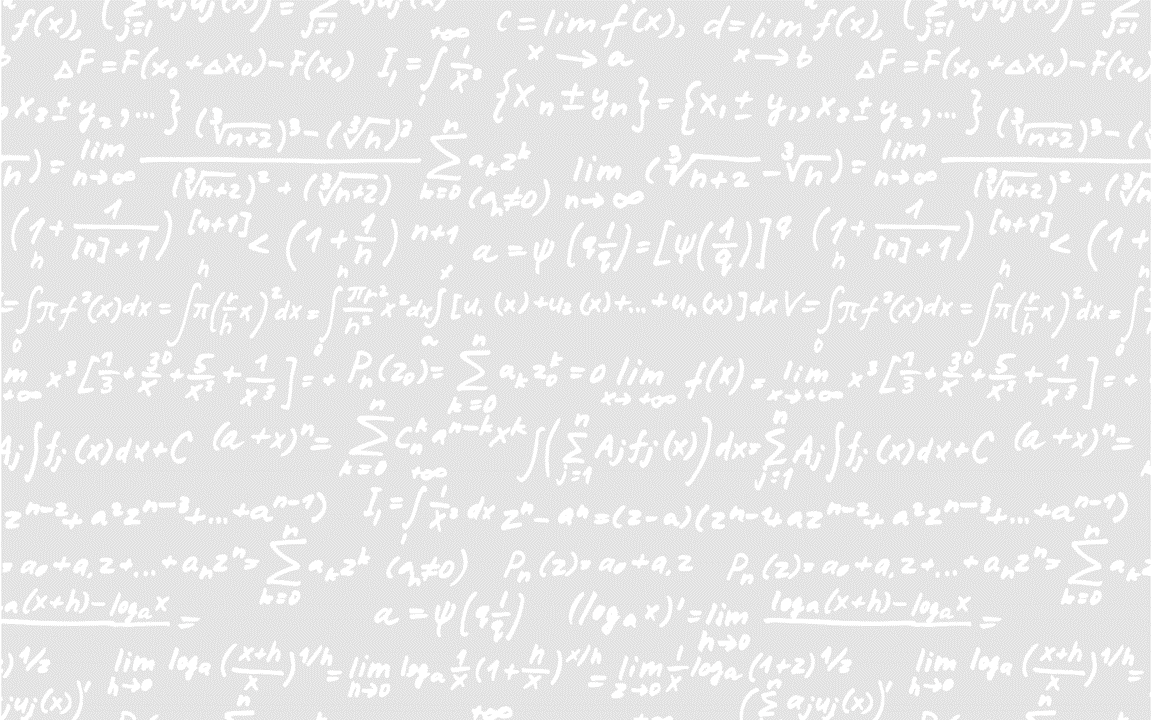 f(x), (∑ j=1 ajuj(x)) = ∑ j=1 c = lim x→a f(x), d = lim x→b f(x),
ΔF = F(x₀ + Δx₀) − F(x₀) I₁ = ∫₁^{+∞} 1/x³ ΔF = F(x₀ + Δx₀) − F(x₀
, x₂ ± y₂, ... } {xₙ ± yₙ} = {x₁ ± y₁, x₂ ± y₂, ... }
n) = lim n→∞ ((∛n+2)³ − (∛n)³) / ((∛n+2)² + (∛n+2) ∑_{k=0}^{n} aₖzᵏ (aₙ≠0) lim n→∞ (∛n+2 − ∛n) = lim n→∞ (∛n+2)³ − / (∛n+2)² + (∛n+2
(1 + 1/([n]+1))^{[n+1]} < (1 + 1/n)^{n+1} a = ψ(q 1/q) = [ψ(1/q)]^q (1 + 1/([n]+1))^{[n+1]} < (1 +
= ∫₀^h πf²(x)dx = ∫₀^h π(r/h x)² dx = ∫₀^h πr²/h² x²dx ∫ₐˣ [u₁(x)+u₂(x)+...+uₙ(x)]dx V = ∫₀^h πf²(x)dx = ∫₀^h π(r/h x)² dx = ∫
m →+∞ x³[1/3 + 30/x + 5/x² + 1/x³] = + Pₙ(z₀) = ∑_{k=0}^{n} aₖz₀ᵏ = 0 lim x→+∞ f(x) = lim x→+∞ x³[1/3 + 30/x + 5/x² + 1/x³] = +
Aj∫fj(x)dx+C (a+x)ⁿ = ∑_{k=0}^{n} Cₙᵏ a^{n−k}xᵏ ∫(∑_{j=1}^{n} Ajfj(x))dx = ∑_{j=1}^{n} Aj∫fj(x)dx+C (a+x)ⁿ =
z^{n−2} + a²z^{n−3} + ... + a^{n−1}) I₁ = ∫₁^{+∞} 1/x³ dx zⁿ − aⁿ = (z−a)(z^{n−1} + az^{n−2} + a²z^{n−3} + ... + a^{n−1})
= a₀ + a₁z + ... + aₙzⁿ = ∑_{k=0}^{n} aₖzᵏ (aₙ≠0) Pₙ(z) = a₀ + a₁z Pₙ(z) = a₀ + a₁z + ... + aₙzⁿ = ∑_{k=0}^{n} aₖz
a(x+h) − logₐx = a = ψ(q 1/q) (logₐx)' = lim h→0 logₐ(x+h) − logₐx =
)^{1/z} lim h→0 logₐ((x+h)/x)^{1/h} = lim n→0 logₐ 1/x (1 + n/x)^{x/h} = lim z→0 1/x logₐ(1+z)^{1/z} lim h→0 logₐ((x+h)/x)^{1/h} =
juj(x))' (∑ ajuj(x))'